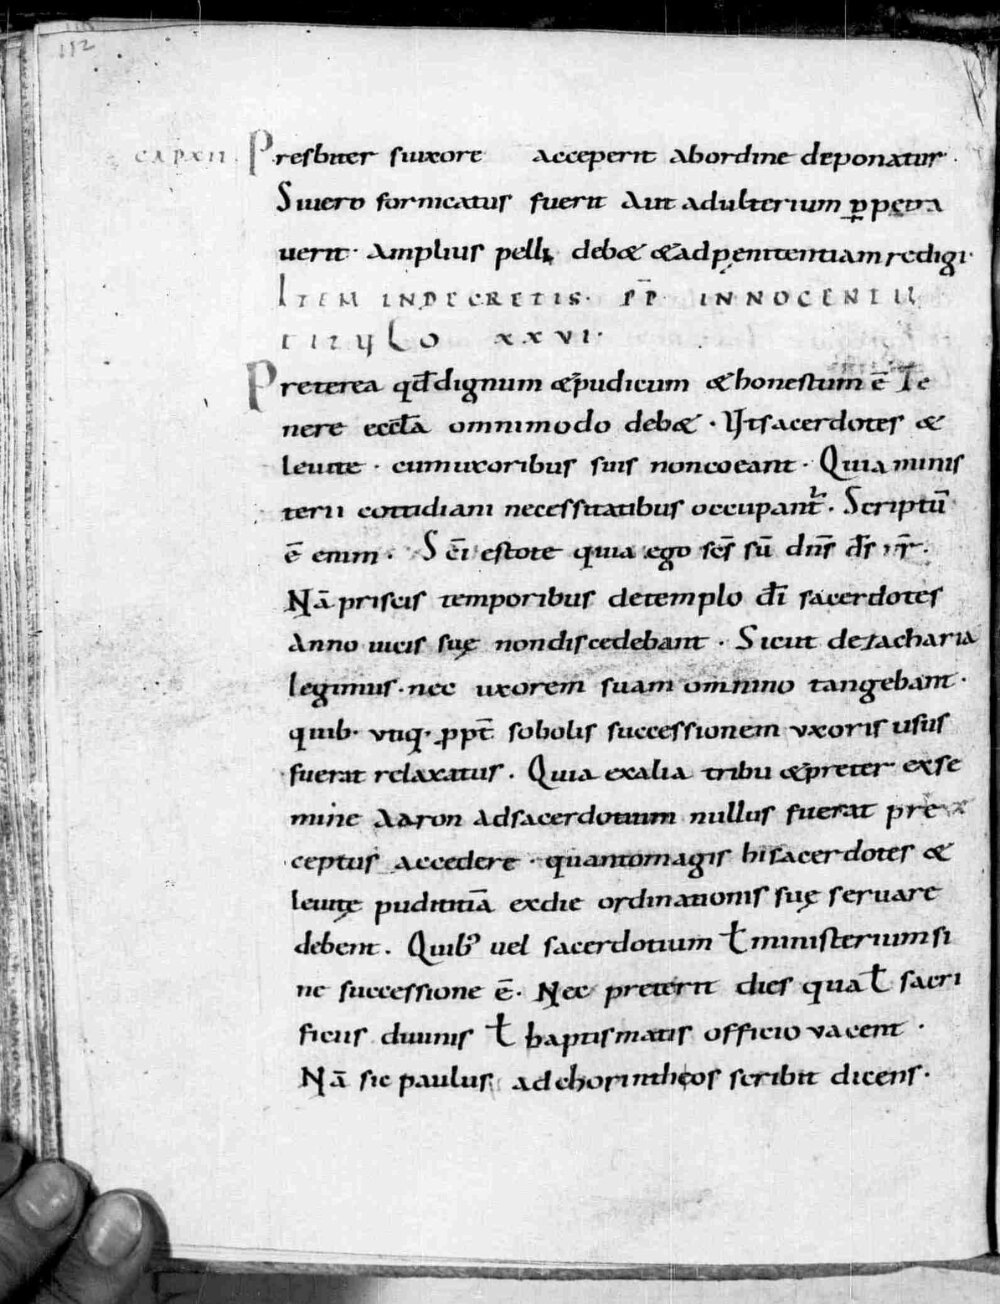 112
CAP XII. Presbiter si uxore acceperit ab ordine deponatur.
Si uero fornicatus fuerit aut adulterium p̲petra
uerit. Amplius pelli deb& &ad penitentiam redigi.
ITEM IN DECRETIS. PP̄. INNOCENTII
TITULO XXVI.
Preterea qđ dignum &pudicum &honestum ē Te
nere eccłā omnimodo deb&. Ut sacerdotes &
leuite. cum uxoribus suis non coeant. Quia minis
terii cottidiani necessitatibus occupant̄. Scriptū
ē enim. Sc̄i estote quia ego sc̄s sū dn̄s ds̄ ur̄.
Nā priscis temporibus de templo dī sacerdotes
Anno uicis suę non discedebant. Sicut de zacharia
legimus. nec uxorem suam omnino tangebant.
quib. utiq. ppt̄ sobolis successionem uxoris usus
fuerat relaxatus. Quia ex alia tribu &preter ex se
mine Aaron ad sacerdotium nullus fuerat pre
ceptus accedere. quanto magis hi sacerdotes &
leuitę pudititiā ex die ordinationis suę seruare
debent. Quib; uel sacerdotium ł ministerium si
ne successione ē. Nec preterit dies qua ł sacri
ficiis diuinis ł baptismatis officio vacent.
Nā sic paulus ad chorintheos scribit dicens.